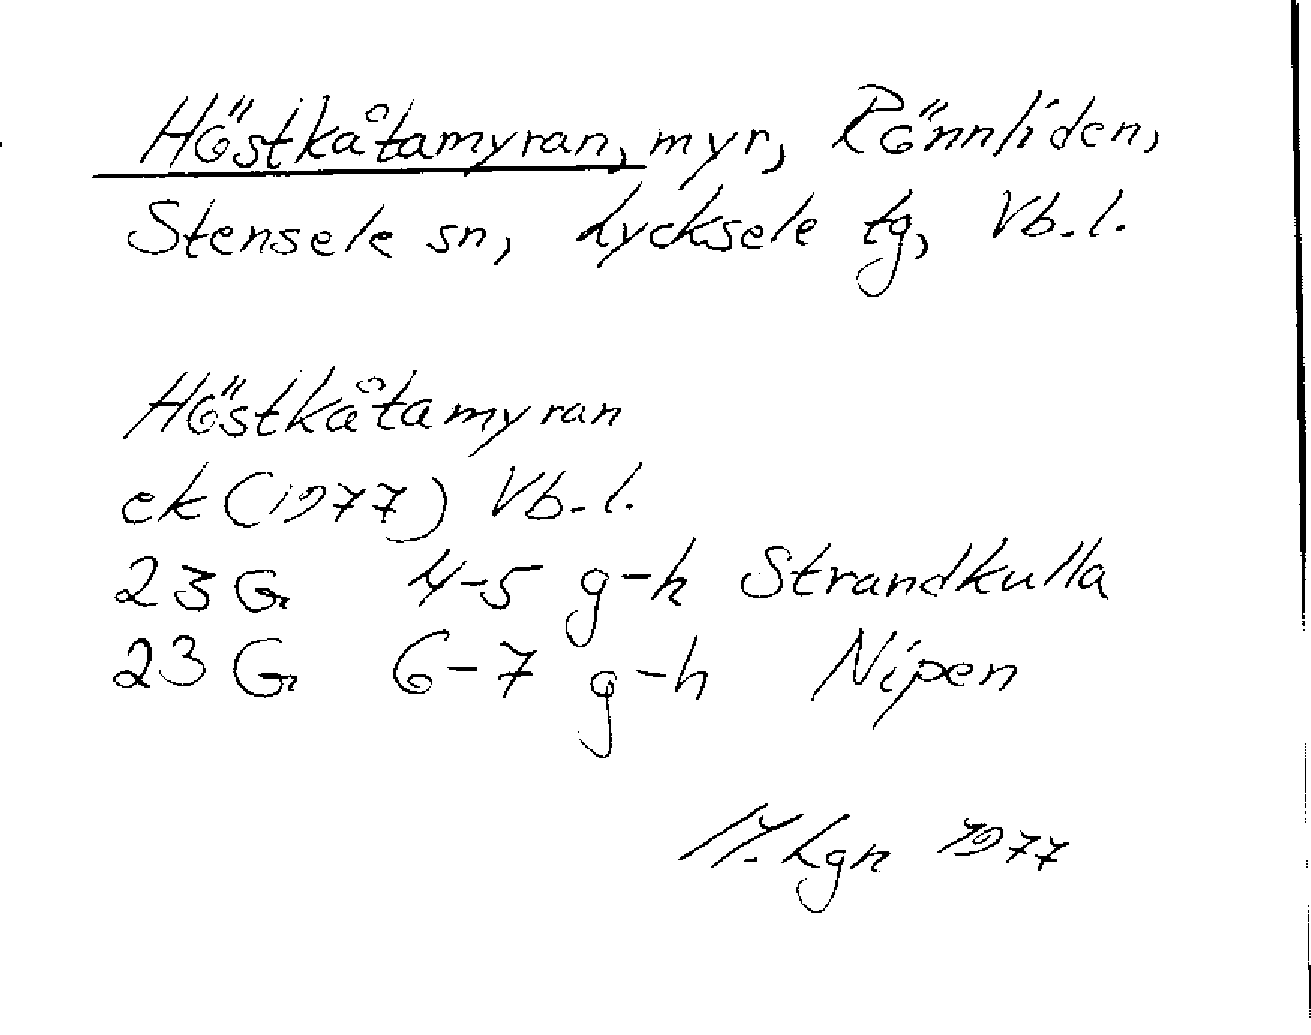 Höstkåtamyran, myr, Rönnliden,
Stensele sn, Lycksele tg, Vb. l.
Höstkåtamyran
ek (1977) Vb. l.
23 G 4-5 g-h Strandkulla
23 G 6-7 g-h Nipen
Lgn 1977